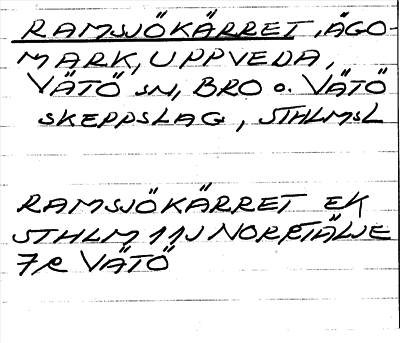 RAMSJÖKÄRRET, ÄGO-
MARK, UPPVEDA,
VÄTÖ SN, BRO O. VÄTÖ
SKEPPSLAG, STHLMSL
RAMSJÖKÄRRET EK
STHLM 11J NORRTÄLJE
7e VÄTÖ